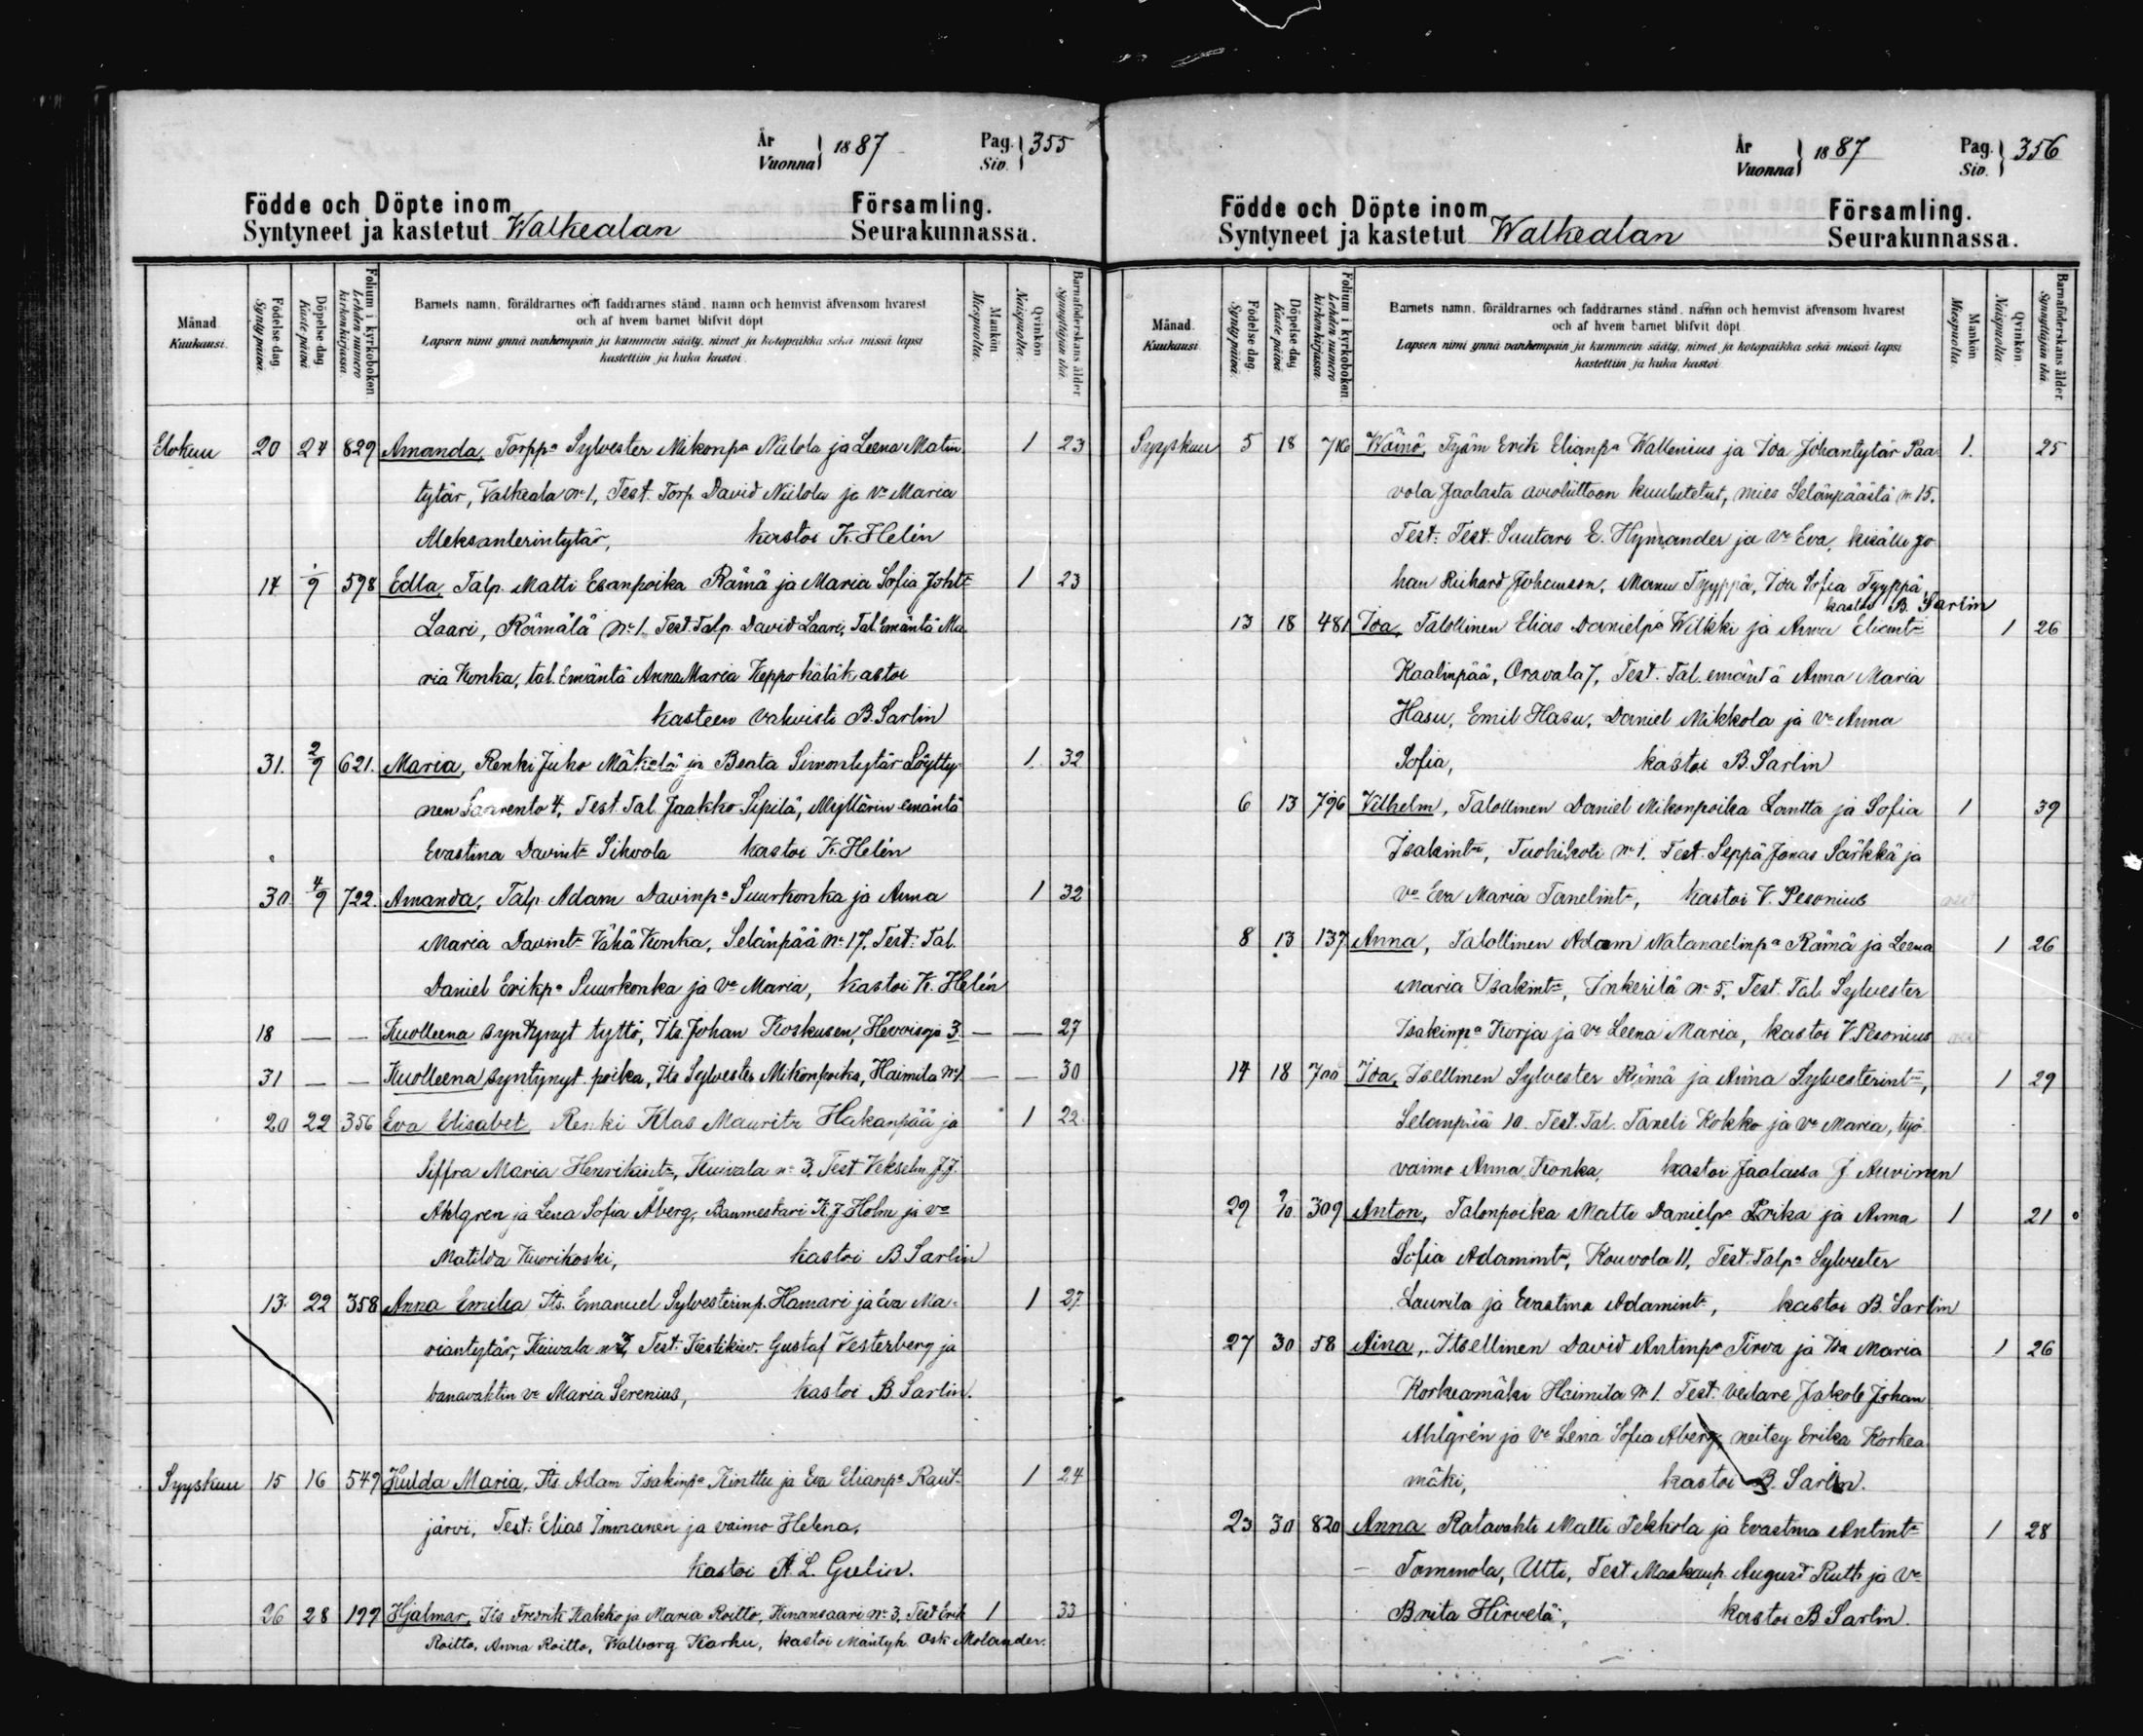 År
Vuonna } 1887 Pag. Siv. } 355
Födde och Döpte inom Församling.
Syntyneet ja kastetut Walkealan Seurakunnassa.
Månad. Kuukausi. Födelse dag. Syntypäivä. Döpelse-dag. Kaste päivä. Folium i kyrkoboken. Lehden numero kirkonkirjassa.
Barnets namn, föräldrarnes och faddrarnes stånd, namn och hemvist äfvensom hvarest
och af hvem barnet blifvit döpt.
Lapsen nimi ynnä vanhempain ja kummein sääty, nimet ja kotopaikka sekä missä lapsi
kastettiin ja kuka kastoi.
Mankön. Miespuolta. Qvinkön. Naispuolta. Barnaföderskans ålder. Synnyttäjän ikä.
Elokuu 20 24 829 Amanda, Torppa Sylvester Mikonpa Niilola ja Leena Matin 1 23
tytär, Valkeala No 1, Test. Torp. David Niilola ja Vo Maria
Aleksanterintytär, kastoi K. Helén
14 1/9 598 Edla, Talp. Matti Esanpoika Rämä ja Maria Sofia Joht- 1 23
Laari, Rämälä No 1 Test. Talp. David Laari, Tal. Emäntä Ma
ria Konka, tal. Emäntä Anna Maria Keppo hätäkastoi
kasteen vahvisti B. Sarlin
31. 2/9 621. Maria, Renki Juho Mäkelä ja Beata Simontytär Löytty- 1. 32
nen 4, Test. Tal. Jaakko Sipilä, Myllärin emäntä
Evastina Davint- Sihvola kastoi K. Helén
30 4/9 722. Amanda, Talp. Adam Davinpa Suurkonka ja Anna 1 32
Maria Davint- Vähä Konka, Selänpää No 17, Test: Tal.
Daniel Erikpa Suurkonka ja Vo Maria, kastoi K. Helén
18 — — Kuolleena syntynyt tyttö, Its. Johan Koskusen, Hevoisoja 3. — — 27
31 — — Kuolleena syntynyt poika, Its Sylvester Mikonpoika, Haimila No 1 — — 30
20 22 356 Eva Elisabet, Renki Klas Mauritz Hakanpää ja 1 22.
Siffra Maria Henrikint-, Kuivala No 3, Test Vekselm. J.J.
Ahlgren ja Lena Sofia Åberg, Banmestari K. J. Holm ja vo
Matilda Kuorikoski, kastoi B Sarlin
13. 22 358 Anna Emilia Its. Emanuel Sylvesterinp. Hamari ja Eva Ma- 1 27
riantytär, Kuivala No 3, Test: Kestikiev. Gustaf Vesterberg ja
banavahtin vo Maria Serenius, kastoi B Sarlin.
Syyskuu 15 16 549 Hulda Maria, Its Adam Isakinpa Kinttu ja Eva Elianpa Raut- 1 24
järvi, Test: Elias Immanen ja vaimo Helena,
kastoi A. L. Gulin.
26 28 197 Hjalmar, Its Fredrik Kakko ja Maria Roitto, Kinansaari No 3, Test Erik 1 33
Roitto, Anna Roitto, Walborg Karhu, kastoi Mäntyh. Osk. Molander.
År
Vuonna } 1887 Pag. Siv. } 356
Födde och Döpte inom Församling.
Syntyneet ja kastetut Walkealan Seurakunnassa.
Månad. Kuukausi. Födelse dag. Syntypäivä. Döpelse dag. Kaste päivä. Folium i kyrkoboken. Lehden numero kirkonkirjassa.
Barnets namn, föräldrarnes och faddrarnes stånd, namn och hemvist äfvensom hvarest
och af hvem barnet blifvit döpt.
Lapsen nimi ynnä vanhempain ja kummein sääty, nimet ja kotopaikka sekä missä lapsi
kastettiin ja kuka kastoi.
Mankön. Miespuolta. Qvinkön. Naispuolta. Barnaföderskans ålder. Synnyttäjän ikä.
Syyskuu 5 18 716 Wäinö, Työm Erik Elianpa Wallenius ja Ida Johantytär Paa- 1. 25
vola Jaalasta avioliittoon kuulutetut, mies Selänpäästä No 15.
Test: Test. Suutari E. Hymander ja Vo Eva, kisälli Jo
han Richard Johansson, Manu Tyyppä, Ida Sofia Tyyppä,
kastoi B. Sarlin
13 18 481 Ida, Talollinen Elias Danielpa Wilkki ja Anna Eliant- 1 26
Kaalinpää, Oravala 7, Test. Tal. emäntä Anna Maria
Hasu, Emil Hasu, Daniel Mikkola ja Vo Anna
Sofia, kastoi B. Sarlin
6 13 796 Vilhelm, Talollinen Daniel Mikonpoika Lantta ja Sofia 1 39
Isakint-, Tuohikoti No 1. Test. Seppä Jonas Särkkä ja
Vo Eva Maria Tanelint-, kastoi V. Pesonius
8 13 137 Anna, Talollinen Adam Natanaelinpa Rämä ja Leena 1 26
Maria Isakint-, Inkerilä No 5, Test. Tal. Sylvester
Isakinpa Korja ja Vo Leena Maria, kastoi V. Pesonius
14 18 700 Ida, Itsellinen Sylvester Rämä ja Anna Sylvesterint-, 1 29
Selänpää 10. Test. Tal. Taneli Kokko ja Vo Maria, työ-
vaimo Anna Konka, kastoi Jaalassa J Auvinen
29 2/10 309 Anton, Talonpoika Matti Danielpa Erika ja Anna 1 21
Sofia Adamint-, Kouvola 11, Test. Talpa Sylvester
Laurila ja Evastina Adamint-, kastoi B. Sarlin
27 30 58 Aina, Itsellinen David Antinpa Tirva ja Ida Maria 1 26
Korkeamäki Haimila No 1. Test. Jakob Johan
Ahlgrén ja Vo Lena Sofia Åberg, neitsy Erika Korkea
mäki, kastoi B. Sarlin.
23 30 820 Anna Ratavahti Matti Pekkola ja Evastina Antint- 1 28
Tommola, Utti, Test. August Rutti ja Vo
Brita Hirvelä, kastoi B Sarlin.